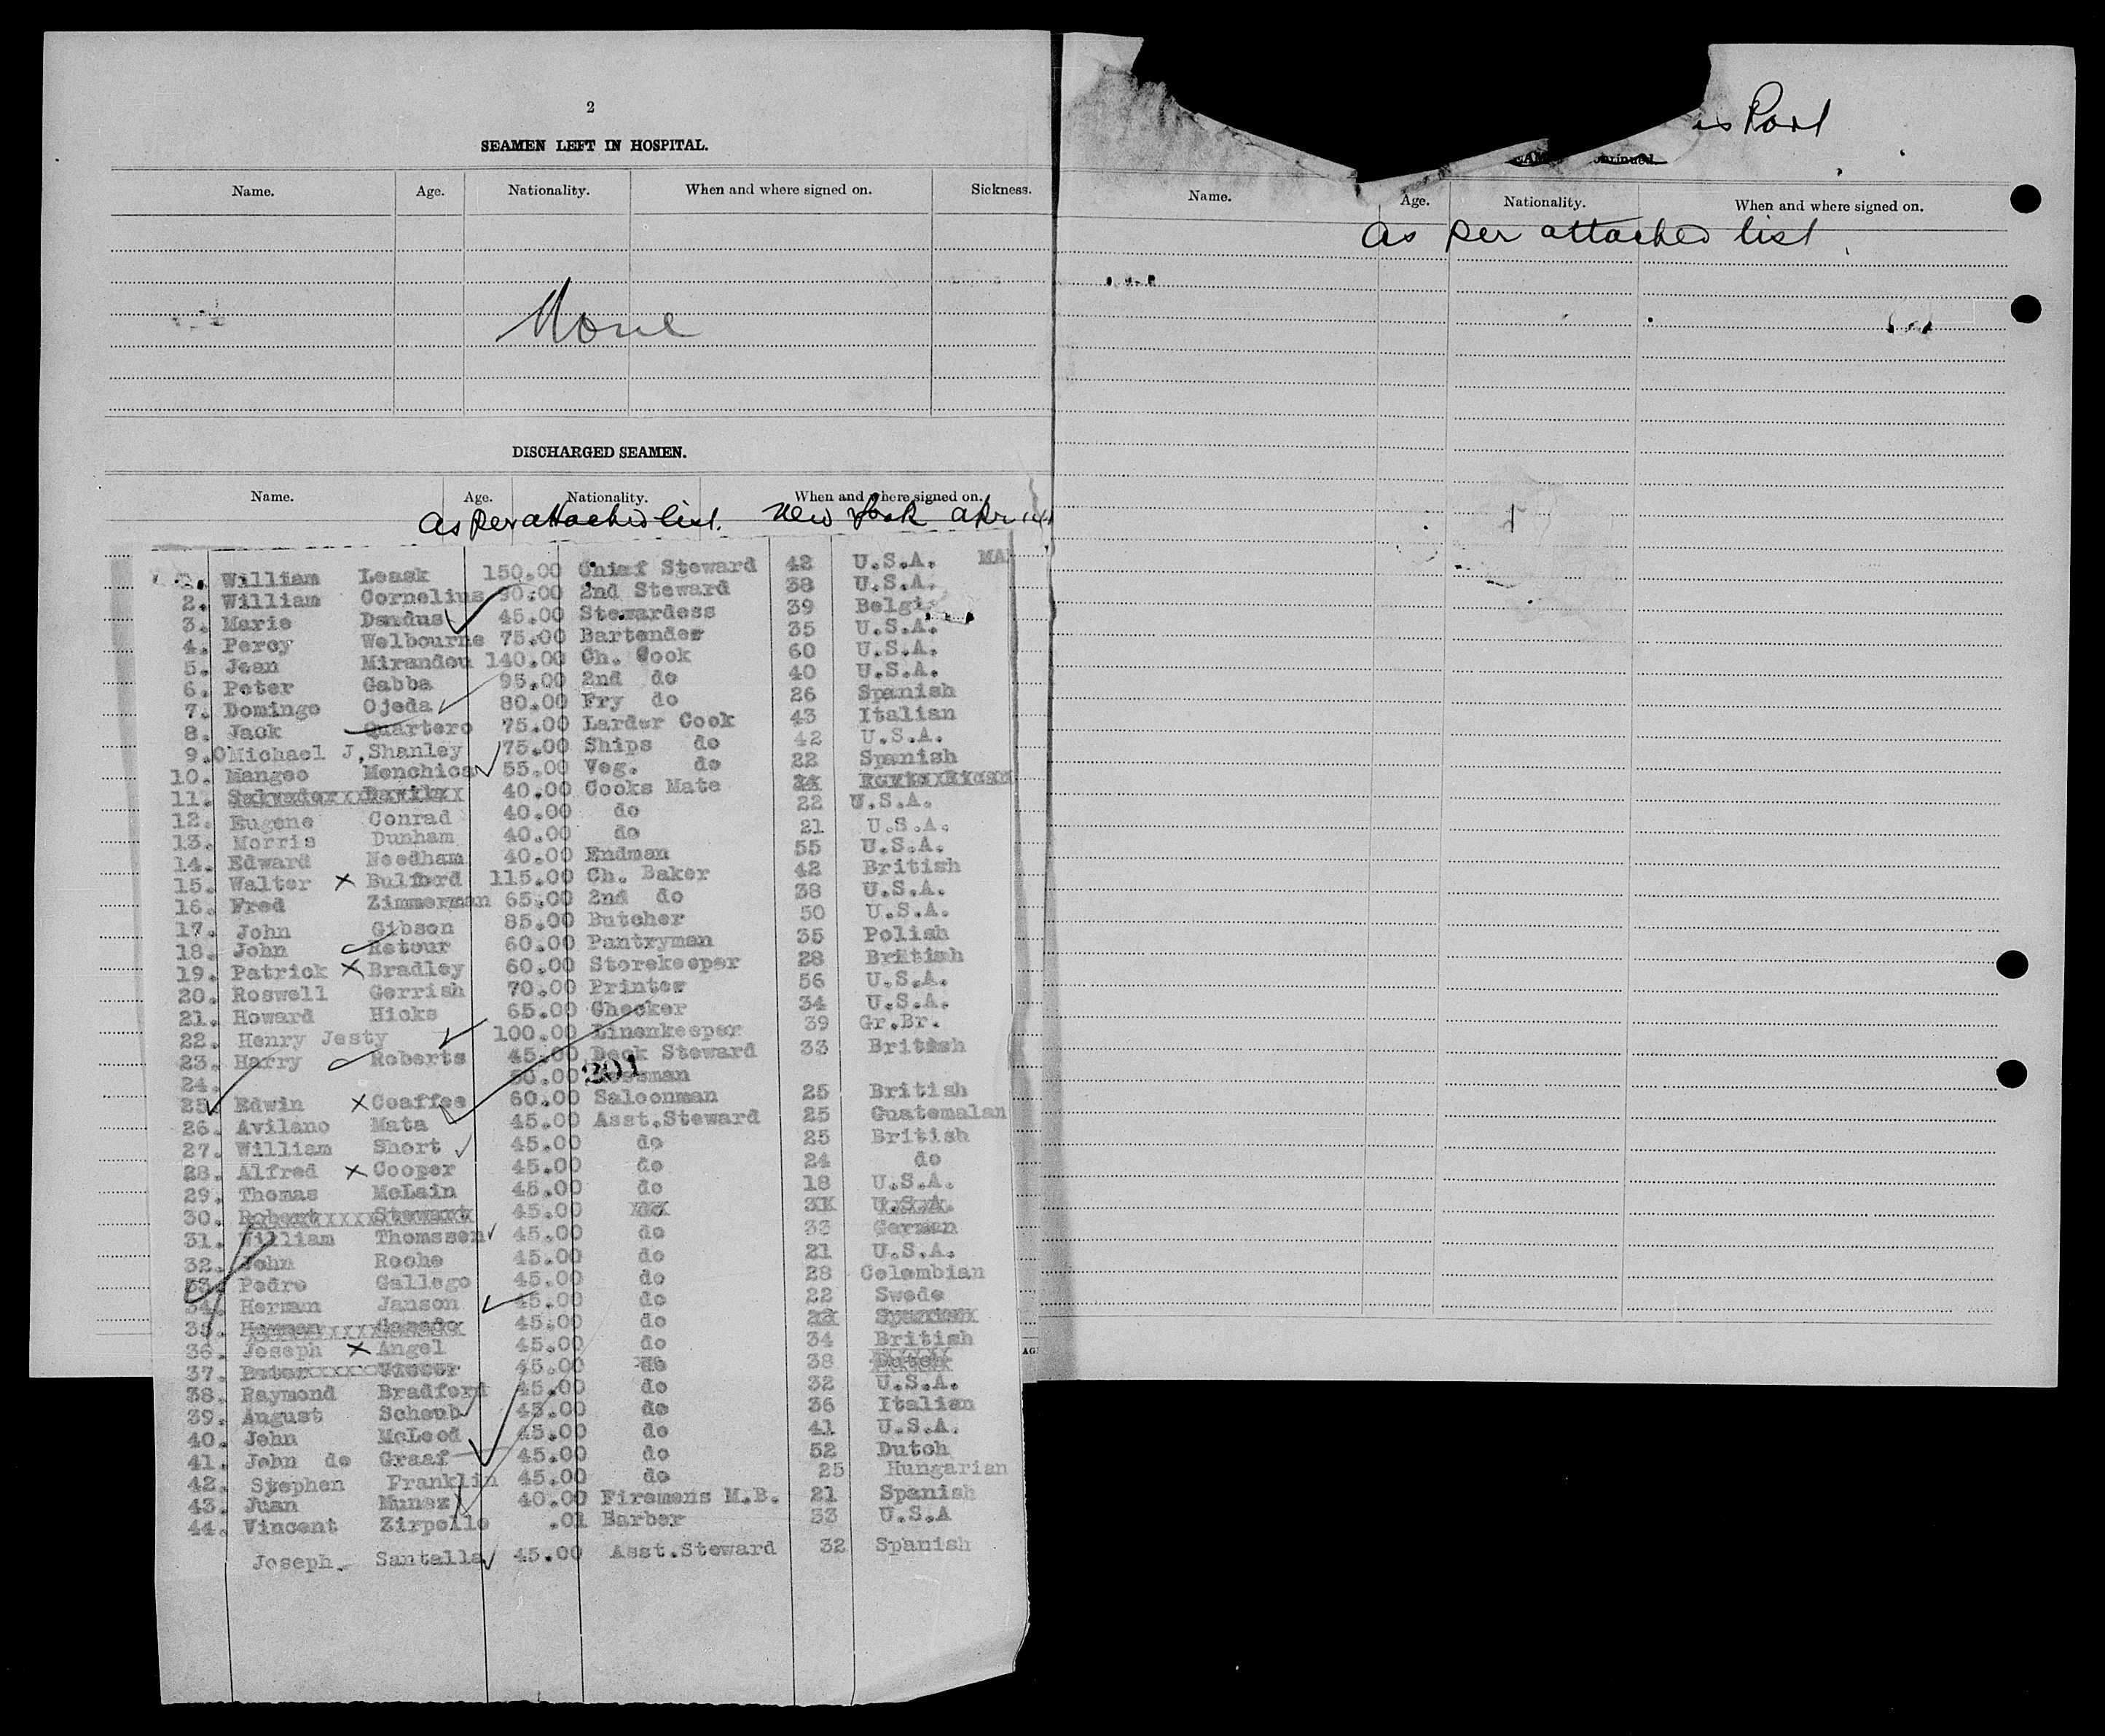 2
SEAMEN LEFT IN HOSPITAL.
Name. Age. Nationality. When and where signed on. Sickness.
None
DISCHARGED SEAMEN.
Name. Age. Nationality. When and where signed on.
As per attached list. New York Apr
William Leask 150.00 Chief Steward 42 U.S.A. MA
2. William Cornelius 90.00 2nd Steward 38 U.S.A.
3. Marie Dandus 45.00 Stewardess 39 Belgi
4. Percy Welbourne 75.00 Bartender 35 U.S.A.
5. Jean Mirandou 140.00 Ch. Cook 60 U.S.A.
6. Peter Gabba 95.00 2nd do 40 U.S.A.
7. Domingo Ojeda 80.00 Fry do 26 Spanish
8. Jack Quartero 75.00 Larder Cook 43 Italian
9. Michael J. Shanley 75.00 Ships do 42 U.S.A.
10. Mangeo Menchica 55.00 Veg. do 22 Spanish
11. Salvador Davila 40.00 Cooks Mate
12. Eugene Conrad 40.00 do 22 U.S.A.
13. Morris Dunham 40.00 do 21 U.S.A.
14. Edward Needham 40.00 Endman 55 U.S.A.
15. Walter X Bulford 115.00 Ch. Baker 42 British
16. Fred Zimmerman 65.00 2nd do 38 U.S.A.
17. John Gibson 85.00 Butcher 50 U.S.A.
18. John Retour 60.00 Pantryman 35 Polish
19. Patrick X Bradley 60.00 Storekeeper 28 British
20. Roswell Gerrish 70.00 Printer 56 U.S.A.
21. Howard Hicks 65.00 Checker 34 U.S.A.
22. Henry Jesty 100.00 Linenkeeper 39 Gr.Br.
23. Harry Roberts 45.00 Deck Steward 33 British
24. 201
25. Edwin X Coaffee 60.00 Saloonman 25 British
26. Avilano Mata 45.00 Asst.Steward 25 Guatemalan
27. William Short 45.00 do 25 British
28. Alfred X Cooper 45.00 do 24 do
29. Thomas McLain 45.00 do 18 U.S.A.
30. Robert Stewart 45.00 do U.S.A.
31. William Thomssen 45.00 do 33 German
32. John Roche 45.00 do 21 U.S.A.
33. Pedro Gallego 45.00 do 28 Colombian
34. Herman Janson 45.00 do 22 Swede
35. 45.00 do Spanish
36. Joseph X Angel 45.00 do 34 British
37. 45.00 do 38 Dutch
38. Raymond Bradford 45.00 do 32 U.S.A.
39. August Schenb 45.00 do 36 Italian
40. John McLeod 45.00 do 41 U.S.A.
41. John de Graaf 45.00 do 52 Dutch
42. Stephen Franklin 45.00 do 25 Hungarian
43. Juan Munez 40.00 Firemens M.B. 21 Spanish
44. Vincent Zirpollo .01 Barber 33 U.S.A
Joseph Santalla 45.00 Asst.Steward 32 Spanish
is Port
Name. Age. Nationality. When and where signed on.
As per attached list.